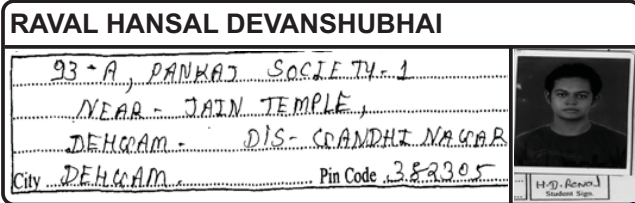 RAVAL HANSAL DEVANSHUBHAI
93-A, PANKAJ SOCIETY-1
NEAR - JAIN TEMPLE,
DEHGAM - DIS- GANDHI NAGAR
City DEHGAM. Pin Code 382305
H.D. Raval
Student Sign.